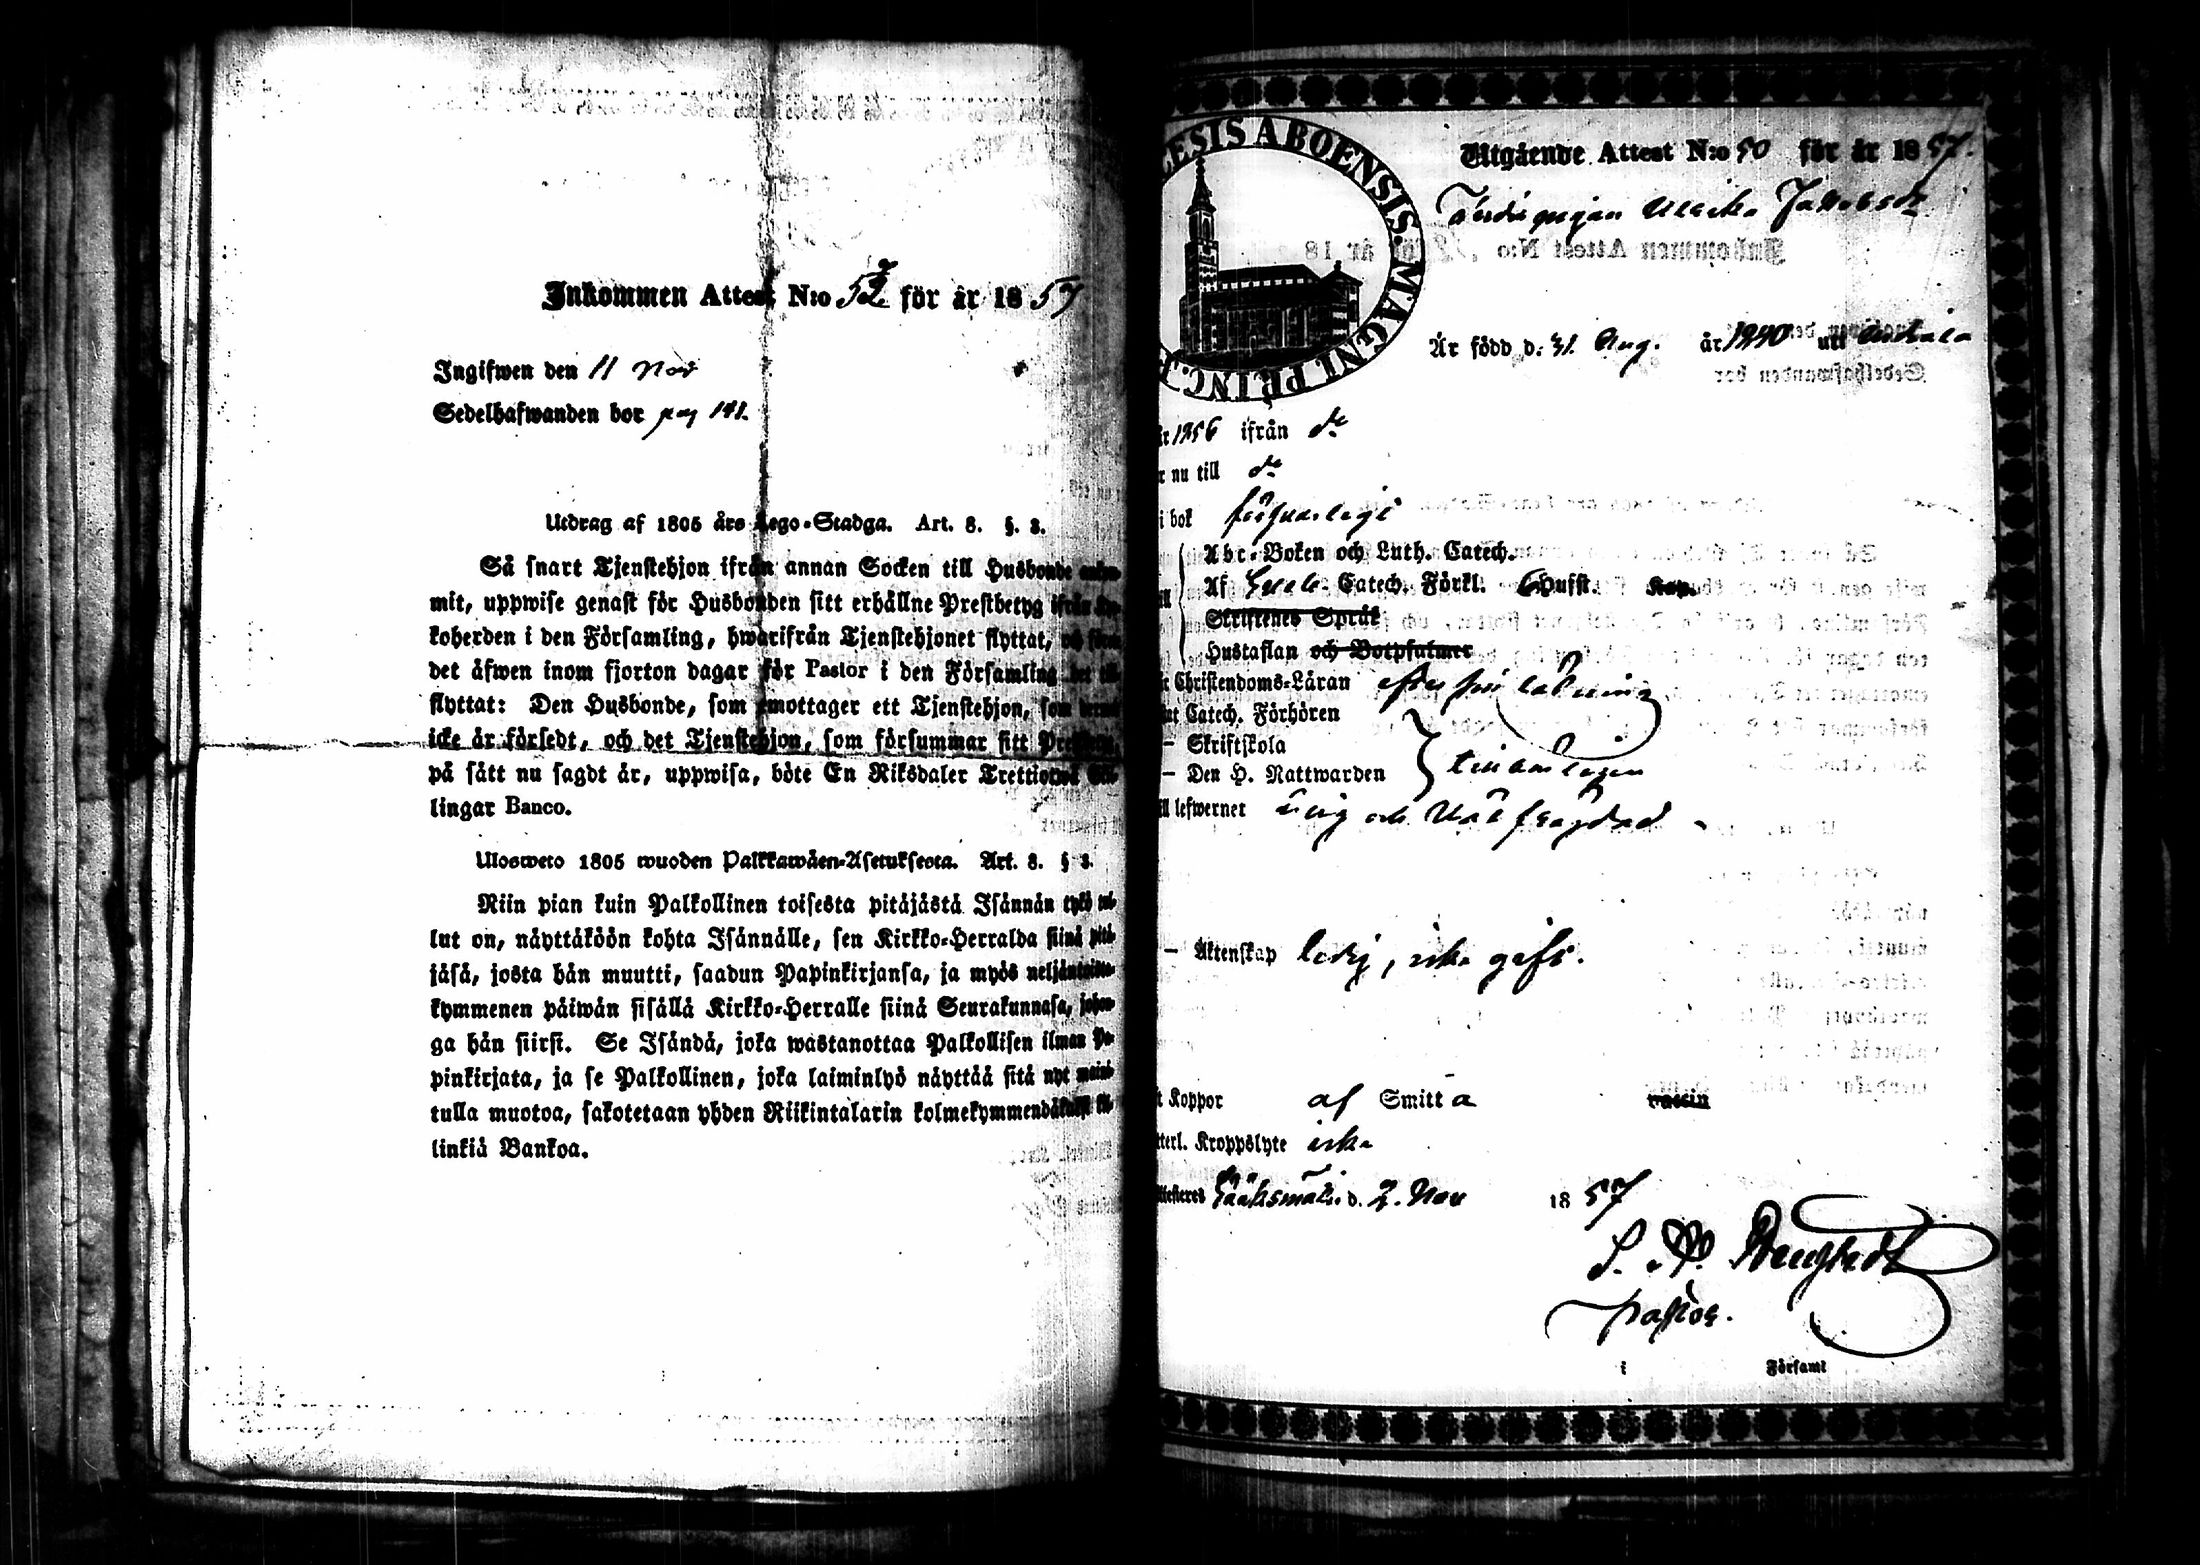 Inkommen Attest N:o 57 för år 1857
Ingifwen den 11 Nov
Sedelhafwanden bor pag 141.
Utdrag af 1805 års Lego-Stadga. Art. 8. §. 3.
Så snart Tjenstehjon ifrån annan Socken till Husbonde
mit, uppwise genast för Husbonden sitt erhållne Prestbetyg ifrån
koherden i den Församling, hwarifrån Tjenstehjonet flyttat,
det äfwen inom fjorton dagar för Pastor i den Församling
flyttat: Den Husbonde, som emottager ett Tjenstehjon, som
icke är försedt, och det Tjenstehjon, som försummar sitt
på sätt nu sagdt är, uppwisa, böte En Riksdaler Trettiotwå
lingar Banco.
Ulosweto 1805 wuoden Palkkawäen-Asetuksesta. Art. 8. § 3.
Niin pian kuin Palkollinen toisesta pitäjästä Isännän tykö
lut on, näyttäköön kohta Isännälle, sen Kirkko-Herralda siinä
jäsä, josta hän muutti, saadun Papinkirjansa, ja myös neljäntoista-
kymmenen päiwän sisällä Kirkko-Herralle siinä Seurakunnasa, johon-
ga hän siirsi. Se Isändä, joka wastanottaa Palkollisen ilman Pa-
pinkirjata, ja se Palkollinen, joka laiminlyö näyttää sitä nyt
tulla muotoa, sakotetaan yhden Riikintalarin kolmekymmendäkaksi
linkiä Bankoa.
ESIS ABOENSIS. MAGNI. PRINC.
Utgående Attest N:o 50 för år 1857.
Ulrika Jakobsdr
Är född d. 31. Aug. år 1840 uti
1856 ifrån do
nu till do
i bok försvarligt
Abc-Boken och Luth. Catech.
Af Catech. Förkl. Hufst. Kap.
Skriftenes Språk
Hustaflan och Botpsalmer
Christendoms-Läran efter
Catech. Förhören
— Skriftskola
— Den H. Nattwarden
lefwernet ärlig och wäl frägdad
— Äktenskap ledig, icke gift.
Koppor af Smitta
Kroppslyte icke
Sääksmäki d. 2. Nov 1857
Pastor.
i Församl